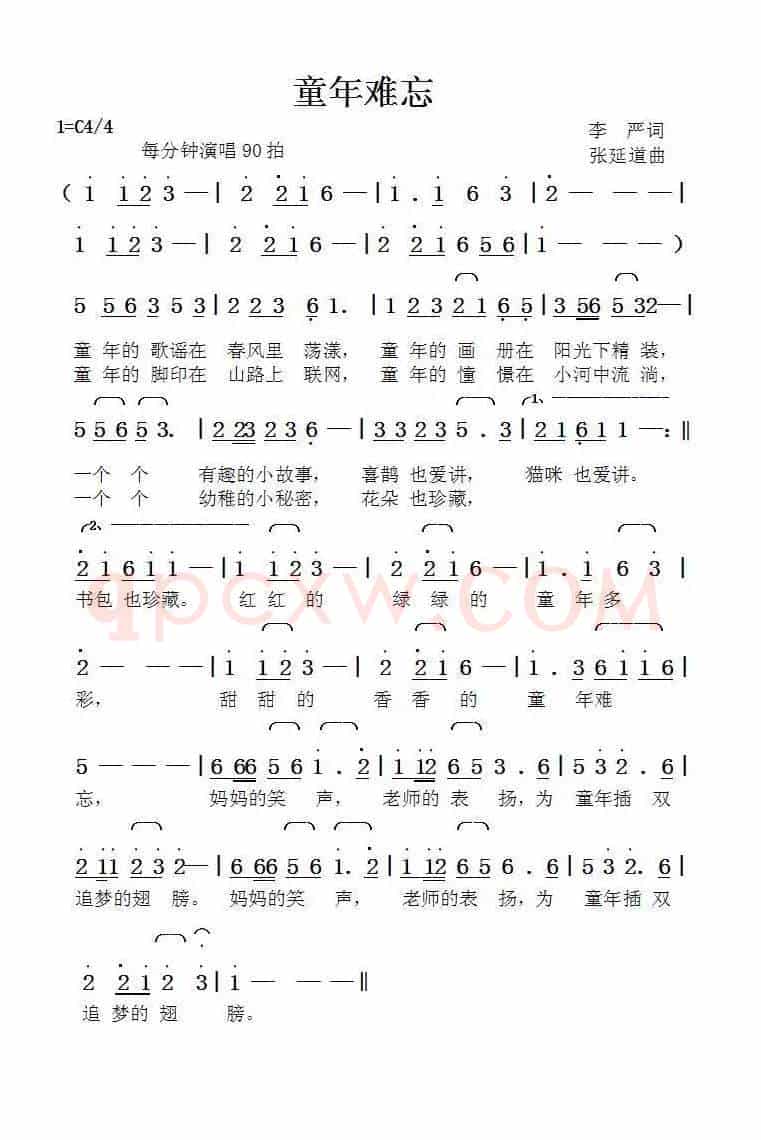 童年难忘
1=C4/4
李 严词
每分钟演唱90拍
张延道曲
( i i 2 3 — | 2 2 i 6 — | i . i 6 3 | 2 — — — |
i i 2 3 — | 2 2 i 6 — | 2 2 i 6 5 6 | i — — — )
5 5 6 3 5 3 | 2 2 3 6 1. | 1 2 3 2 1 6 5 | 3 56 5 32— |
童 年的 歌谣在 春风里 荡漾, 童 年的 画 册在 阳光下精 装,
童 年的 脚印在 山路上 联网, 童 年的 憧 憬在 小河中流 淌,
5 5 6 5 3. | 2 23 2 3 6 — | 3 3 2 3 5 . 3 | 2 1 6 1 1 —:‖
一个 个 有趣的小故事, 喜鹊 也爱讲, 猫咪 也爱讲。
一个 个 幼稚的小秘密, 花朵 也珍藏,
2 i 6 i i — | i i 2 3 — | 2 2 i 6 — | i . i 6 3 |
书包 也珍藏。 红 红 的 绿 绿 的 童 年 多
qpcxw.COM
2 — — — | i i 2 3 — | 2 2 i 6 — | i . 3 6 i i 6 |
彩, 甜 甜 的 香 香 的 童 年难
5 — — — | 6 66 5 6 i . 2 | i i2 6 5 3 . 6 | 5 3 2 . 6 |
忘, 妈妈的笑 声, 老师的 表 扬,为 童年插 双
2 ii 2 3 2— | 6 66 5 6 i. 2 | i i2 6 5 3 . 6 | 5 3 2. 6 |
追梦的翅 膀。 妈妈的笑 声, 老师的表 扬,为 童年插 双
2 2 i 2 3 | i — — — ‖
追 梦的 翅 膀。